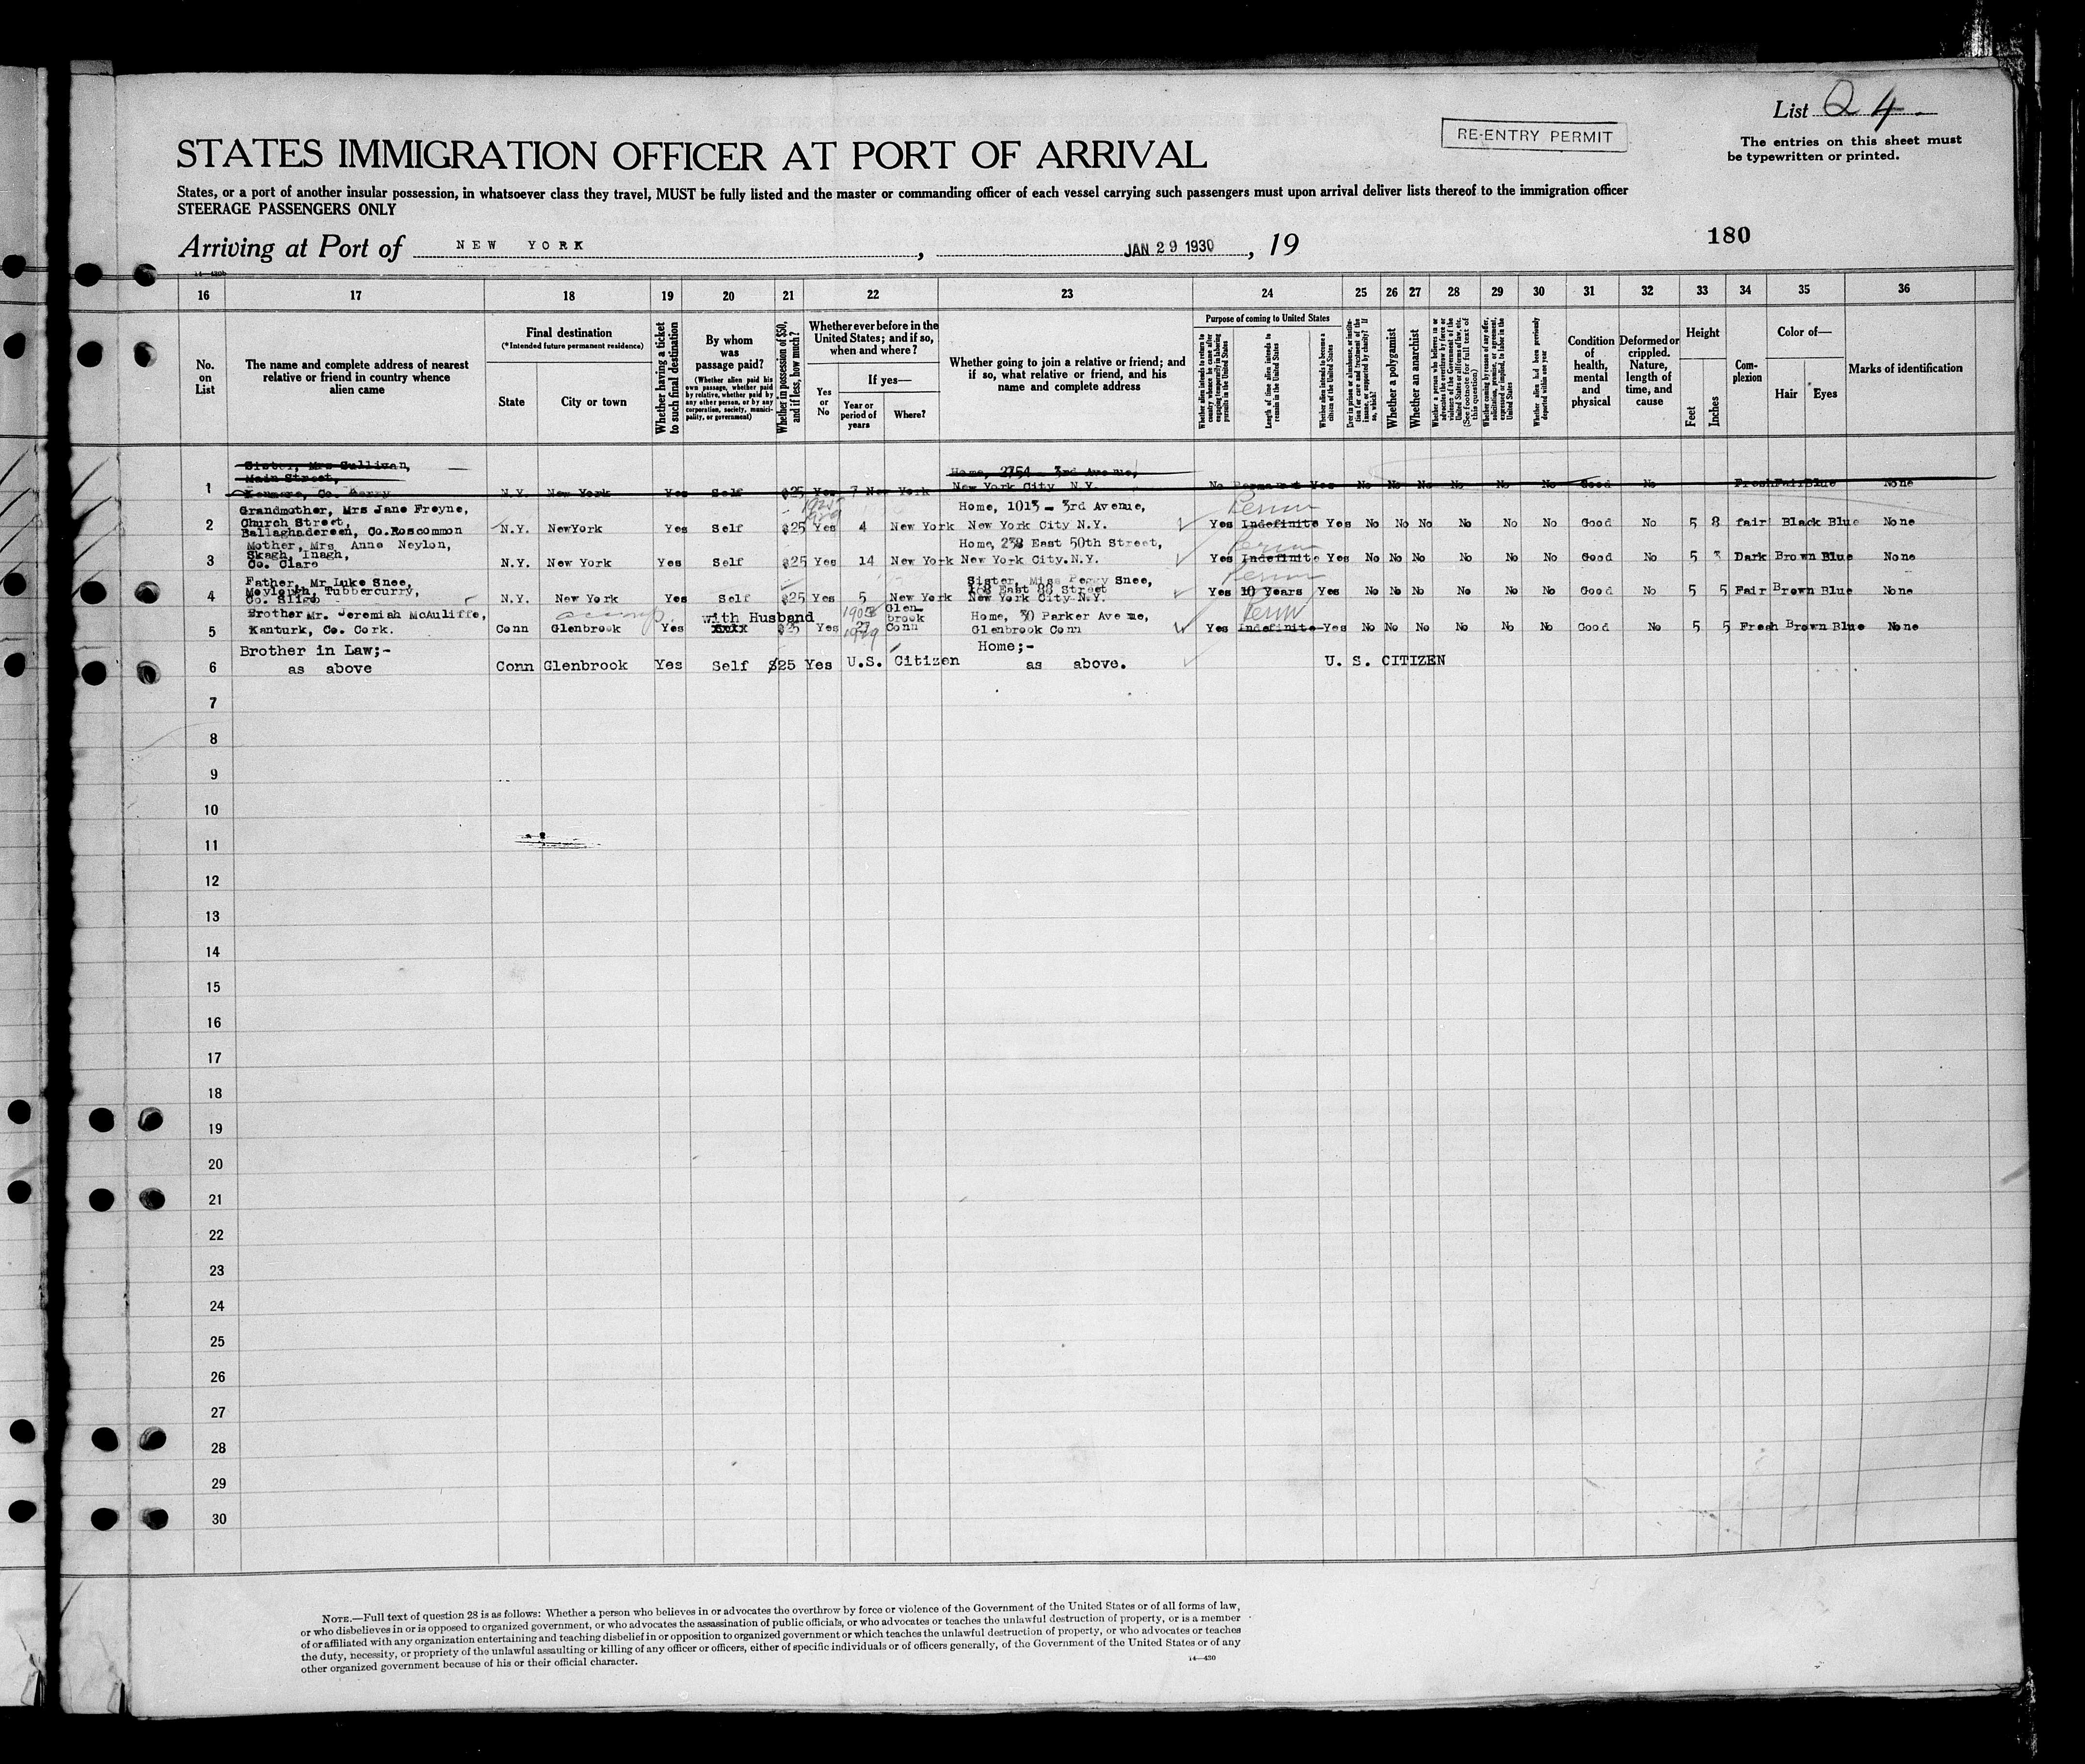 List 24
RE-ENTRY PERMIT
The entries on this sheet must
be typewritten or printed.
STATES IMMIGRATION OFFICER AT PORT OF ARRIVAL
States, or a port of another insular possession, in whatsoever class they travel, MUST be fully listed and the master or commanding officer of each vessel carrying such passengers must upon arrival deliver lists thereof to the immigration officer
STEERAGE PASSENGERS ONLY
180
Arriving at Port of NEW YORK, JAN 29 1930, 19
14—430b
16 17 18 19 20 21 22 23 24 25 26 27 28 29 30 31 32 33 34 35 36
No. on List
The name and complete address of nearest relative or friend in country whence alien came
Final destination
(*Intended future permanent residence)
State
City or town
Whether having a ticket to such final destination
By whom was passage paid?
(Whether alien paid his own passage, whether paid by relative, whether paid by any other person, or by any corporation, society, municipality, or government)
Whether in possession of $50, and if less, how much?
Whether ever before in the United States; and if so, when and where?
Yes or No
If yes—
Year or period of years
Where?
Whether going to join a relative or friend; and if so, what relative or friend, and his name and complete address
Purpose of coming to United States
Whether alien intends to return to country whence he came after engaging temporarily in laboring pursuits in the United States
Length of time alien intends to remain in the United States
Whether alien intends to become a citizen of the United States
Ever in prison or almshouse, or institution for care and treatment of the insane, or supported by charity? If so, which?
Whether a polygamist
Whether an anarchist
Whether a person who believes in or advocates the overthrow by force or violence of the Government of the United States or all forms of law, etc. (See footnote for full text of this question)
Whether coming by reason of any offer, solicitation, promise, or agreement, expressed or implied, to labor in the United States
Whether alien had been previously deported within one year
Condition of health, mental and physical
Deformed or crippled. Nature, length of time, and cause
Height
Feet
Inches
Complexion
Color of—
Hair
Eyes
Marks of identification
1 Sister, Mrs Sullivan,
Main Street,
Kenmare, Co. Kerry
N.Y. New York Yes Self $25 Yes 7 New York
Home, 2754 - 3rd Avenue,
New York City N.Y.
No Permanent Yes No No No No No No Good No Fresh Fair Blue None
2 Grandmother, Mrs Jane Freyne,
Church Street,
Ballaghadereen, Co.Roscommon
N.Y. NewYork Yes Self $25 Yes 1925 1929 4 New York
Home, 1013 - 3rd Avenue,
New York City N.Y.
Perm
Yes Indefinite Yes No No No No No No Good No 5 8 fair Black Blue None
3 Mother, Mrs Anne Neylon,
Skagh, Inagh,
Co. Clare
N.Y. New York Yes Self $25 Yes 14 New York
Home, 238 East 50th Street,
New York City.N.Y.
Perm
Yes Indefinite Yes No No No No No No Good No 5 3 Dark Brown Blue None
4 Father, Mr Luke Snee,
Moylough, Tubbercurry,
Co. Sligo
N.Y. New York Yes Self $25 Yes 5 New York
Sister, Miss Peggy Snee,
168 East 88 Street
New York City N.Y.
Perm
Yes 10 Years Yes No No No No No No Good No 5 5 Fair Brown Blue None
5 Brother Mr. Jeremiah McAuliffe,
Kanturk, Co. Cork.
Conn Glenbrook Yes with Husband $25 Yes 27 1929 Glenbrook Conn
Home, 30 Parker Avenue,
Glenbrook Conn
Perm
Yes Indefinite Yes No No No No No No Good No 5 5 Fresh Brown Blue None
6 Brother in Law;-
as above
Conn Glenbrook Yes Self $25 Yes U.S. Citizen
Home;-
as above.
U. S. CITIZEN
7
8
9
10
11
12
13
14
15
16
17
18
19
20
21
22
23
24
25
26
27
28
29
30
NOTE.—Full text of question 28 is as follows: Whether a person who believes in or advocates the overthrow by force or violence of the Government of the United States or of all forms of law,
or who disbelieves in or is opposed to organized government, or who advocates the assassination of public officials, or who advocates or teaches the unlawful destruction of property, or is a member
of or affiliated with any organization entertaining and teaching disbelief in or opposition to organized government or which teaches the unlawful destruction of property, or who advocates or teaches
the duty, necessity, or propriety of the unlawful assaulting or killing of any officer or officers, either of specific individuals or of officers generally, of the Government of the United States or of any
other organized government because of his or their official character.
14—430